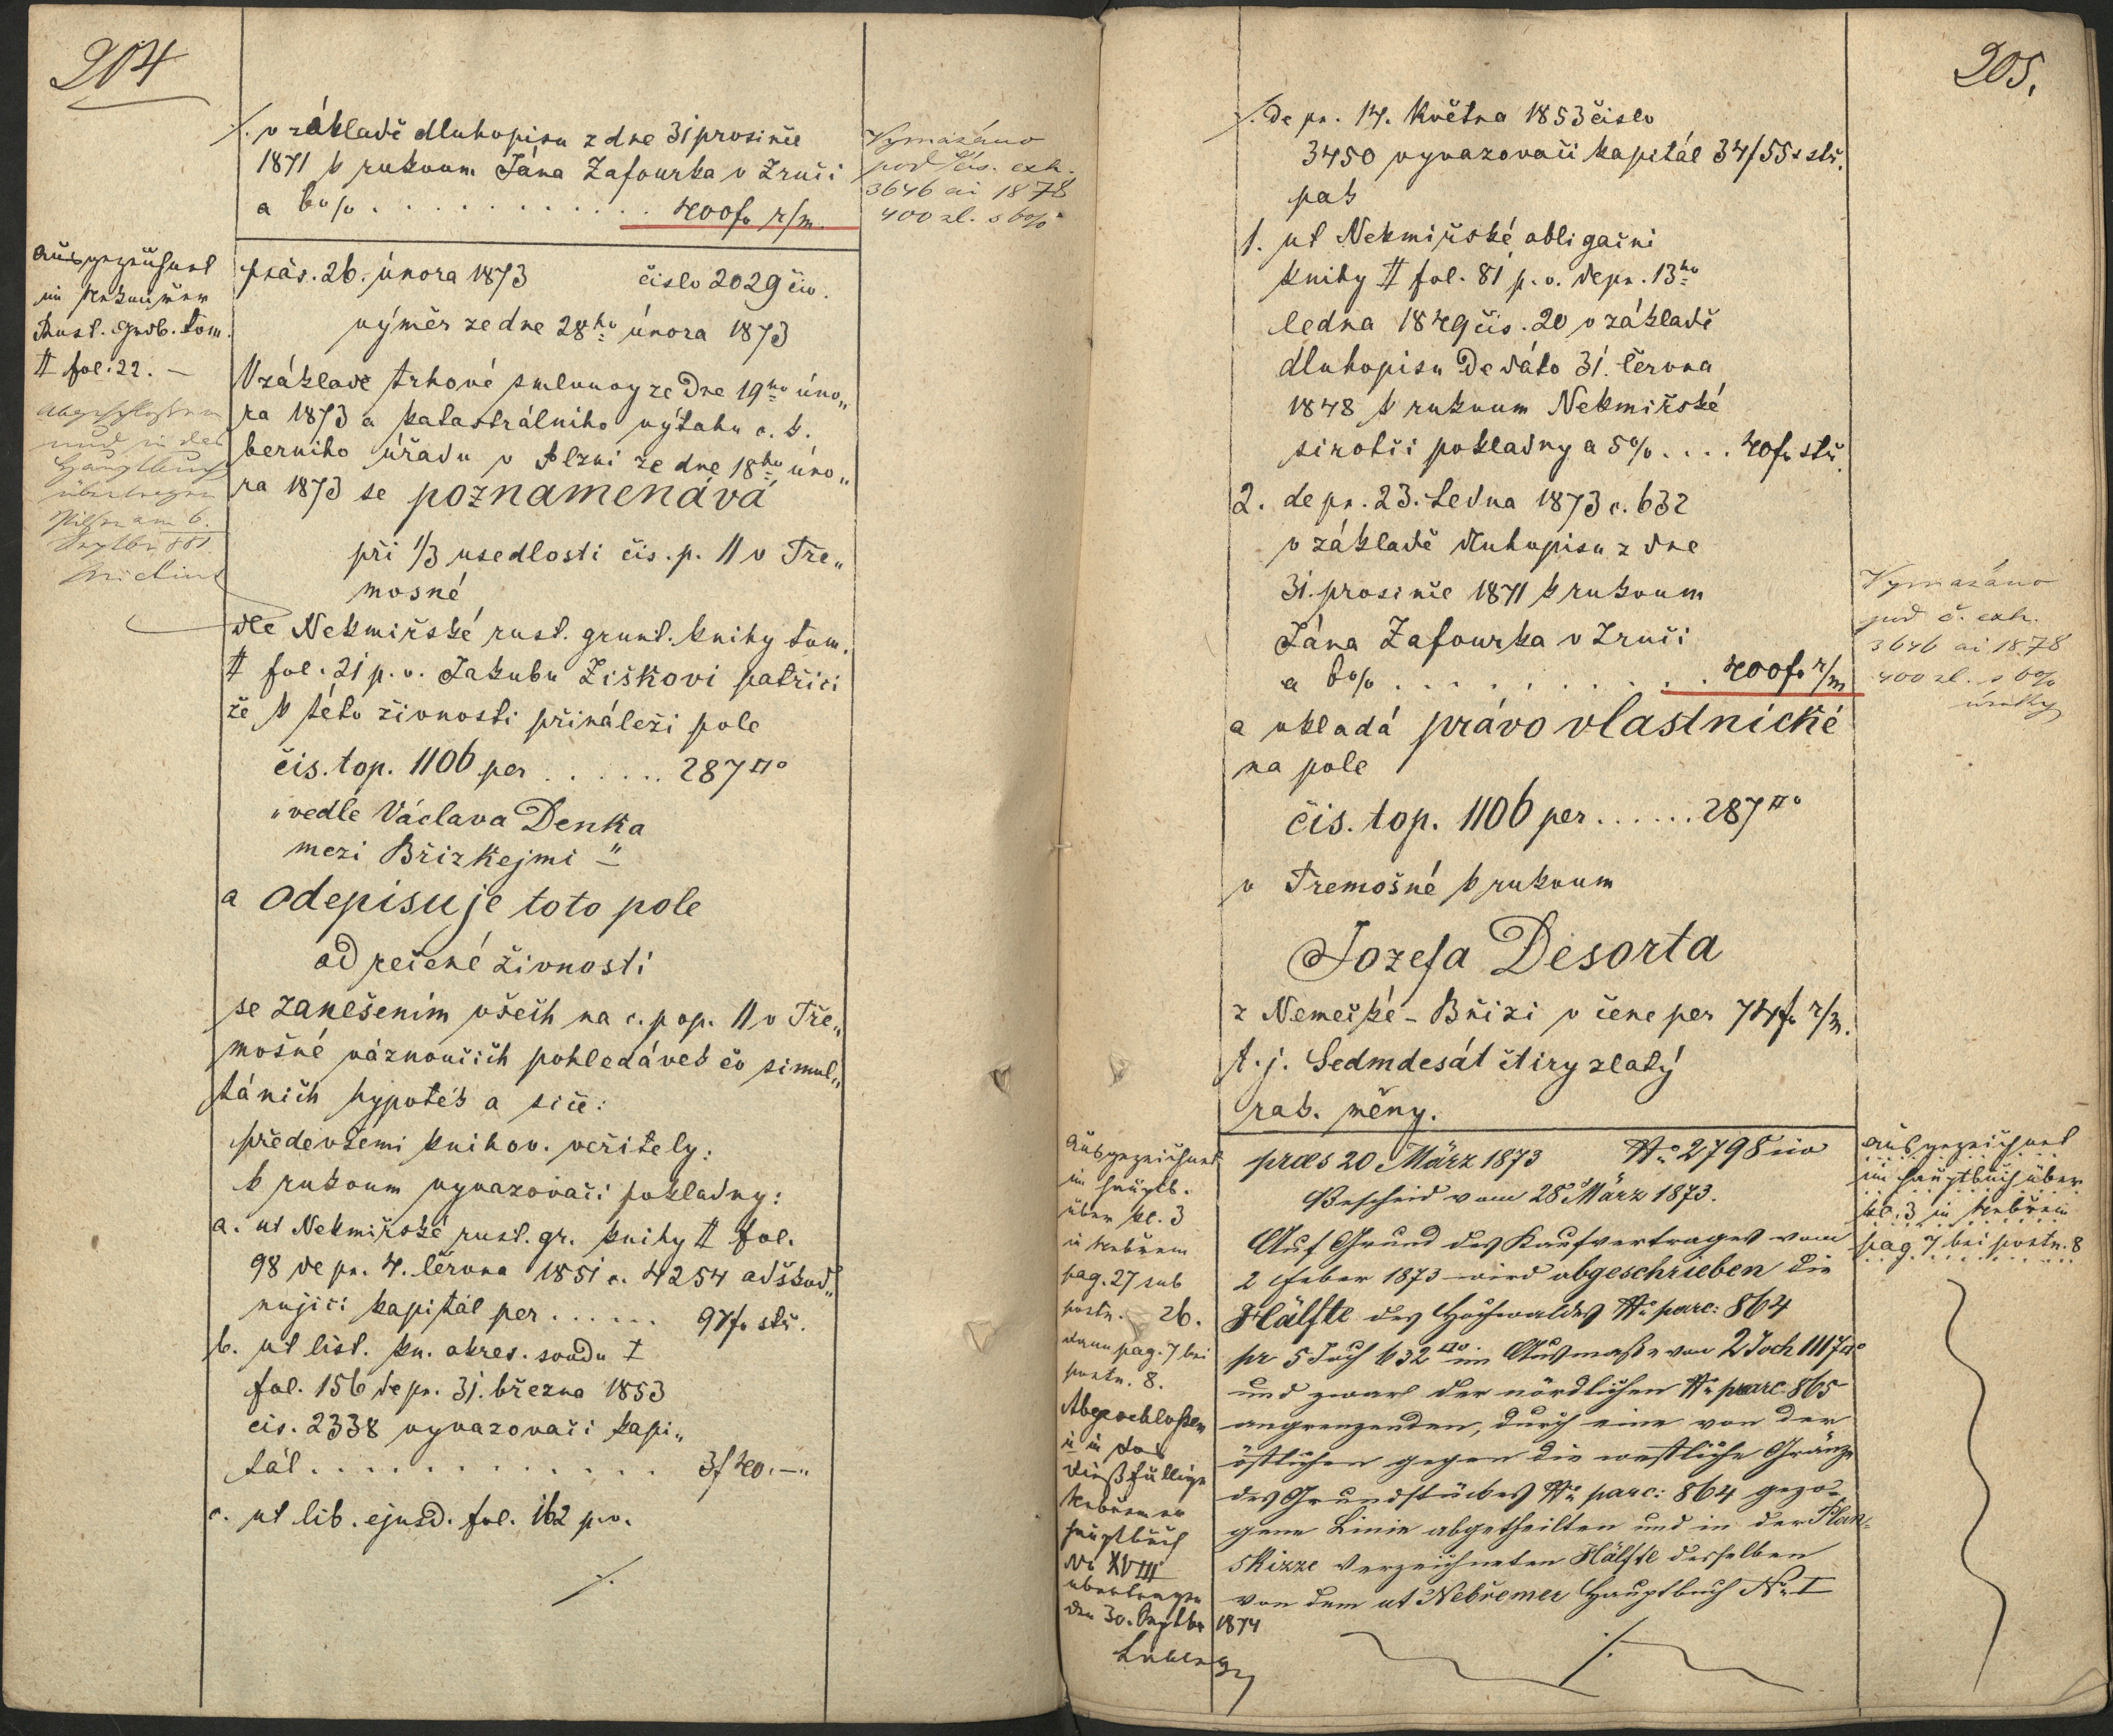 204
·/. v základě dluhopisu z dne 31 prosince
1871 k rukoum Jána Zafourka v Zruči
a 6% . . . . . . . . . . . . 400 fr r/m.
Vymazáno
pod čís. exh.
3646 ai 1878
400 zl. s 6%
Ausgezeichnet
im Nekmiřer
Rust. Grdb. tom.
II fol. 22. –
Abgeschlossen
und in das
Hauptbuch
übertragen
Pilsen am 6.
präs. 26. února 1873 číslo 2029 civ.
výměr ze dne 28ho února 1873
V základě trhové smlouvy ze Dne 19ho úno„
ra 1873 a katastrálního výtahu c. k.
berního úřadu v Plzni ze dne 18ho úno„
ra 1873 se poznamenává
při 1/3 usedlosti čis. p. 11 v Tře„
mosné
dle Nekmiřské rust. grunt. knihy tom.
II fol. 21 p. v. Jakubu Žiškovi patřici
že k této živnosti přináleží pole
čis. top. 1106 per . . . . . . 287 □°
„vedle Václava Denka
mezi Břizkejmi“
a odepisuje toto pole
od řečené živnosti
se zanešením všech na c. pop. 11 v Tře„
mošné váznoucich pohledávek co simul„
táních hypoték a sice:
předevšemi knihov. veřitely:
k rukoum vyvazovací pokladny:
a. ut Nekmiřské rust. gr. knihy II fol.
98 de pr. 4. června 1851 c. 4254 odškod„
nujici kapitál per . . . . . . 97 fr stř.
b. ut list. kn. okres. soudu I
fol. 156 de pr. 31. března 1853
cis. 2338 vyvazovači kapi„
tál . . . . . . . . . . . . . 3 f 40. –„
c. ut lib. ejusd. fol. 162 p. v.
·/.
205.
·/. de pr. 14. května 1853 čislo
3450 vyvazovači kapitál 34/55 x stř.
pak
1. ut Nekmiřské obligačni
knihy II fol. 81 p. v. de pr. 13ho
ledna 1849 čis. 20 v základě
dluhopisu De dáto 31. června
1848 k rukoum Nekmiřské
sirotči pokladny a 5% . . . . 40 fr stř.
2. de pr. 23. Ledna 1873 c. 632
v základě dluhopisu z dne
31. prosince 1871 k rukoum
Jána Zafourka v Zruči
a 6% . . . . . . . . . . . . 400 fr r/m
Vymazáno
pod č. exh.
3646 ai 1878
400 zl. s 6%
úroky
a vkladá právo vlastnické
na pole
čis. top. 1106 per . . . . . . 287 □°
v Třemošné k rukoum
Jozefa Desorta
z Nemecké-Břizi v cene per 74 fr r/m.
t. j. Sedmdesát čtiry zlatý
rak. měny.
Ausgezeichnet
im Hauptb.
über kl. 3
in Nebřem
pag. 27 sub
postn. 26.
dann pag. 7 bei
postn. 8.
Abgeschloßen
u in das
dießfällige
Nebřemer
Hauptbuch
No XVIII
übertragen
den 30. Septbr 1874
praes 20 März 1873 No 2798 civ
Bescheid vom 28 März 1873.
Auf Grund des Kaufvertrages vom
2 Feber 1873 wird abgeschrieben die
Hälfte des Hochwaldes No parc: 864
pr 5 Joch 632 □° im Ausmaße von 2 Joch 1117 □°
und zwar der nördlichen No parc 865
angrenzenden, durch eine von der
östlichen gegen die westliche Gränze
des Grundstückes No parc: 864 gezo-
gene Linie abgetheilten und in der Plan-
skizze verzeichneten Hälfte desselben
von dem ut Nebřemer Hauptbuch No I
·/.
Ausgezeichnet
im Hauptbuch über
kl. 3 in Nebřem
pag. 7 bei postn. 8